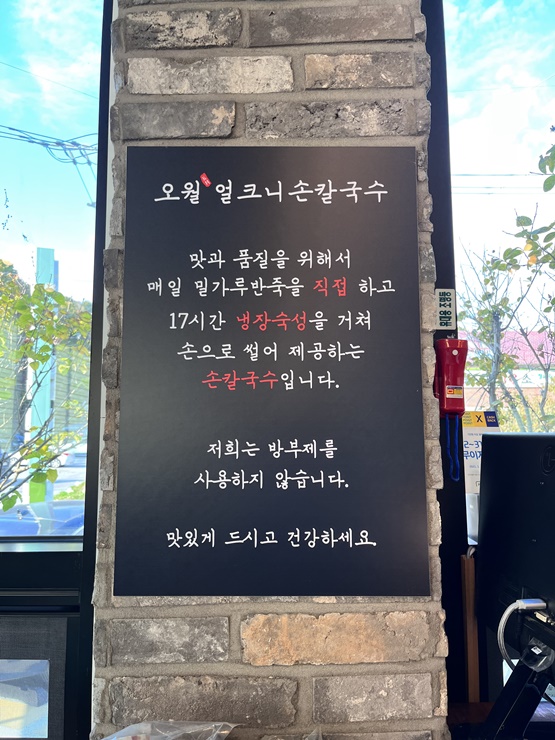 오월 얼크니손칼국수
맛과 품질을 위해서
매일 밀가루반죽을 직접 하고
17시간 냉장숙성을 거쳐
손으로 썰어 제공하는
손칼국수입니다.
저희는 방부제를
사용하지 않습니다.
맛있게 드시고 건강하세요
휴대용 조명등